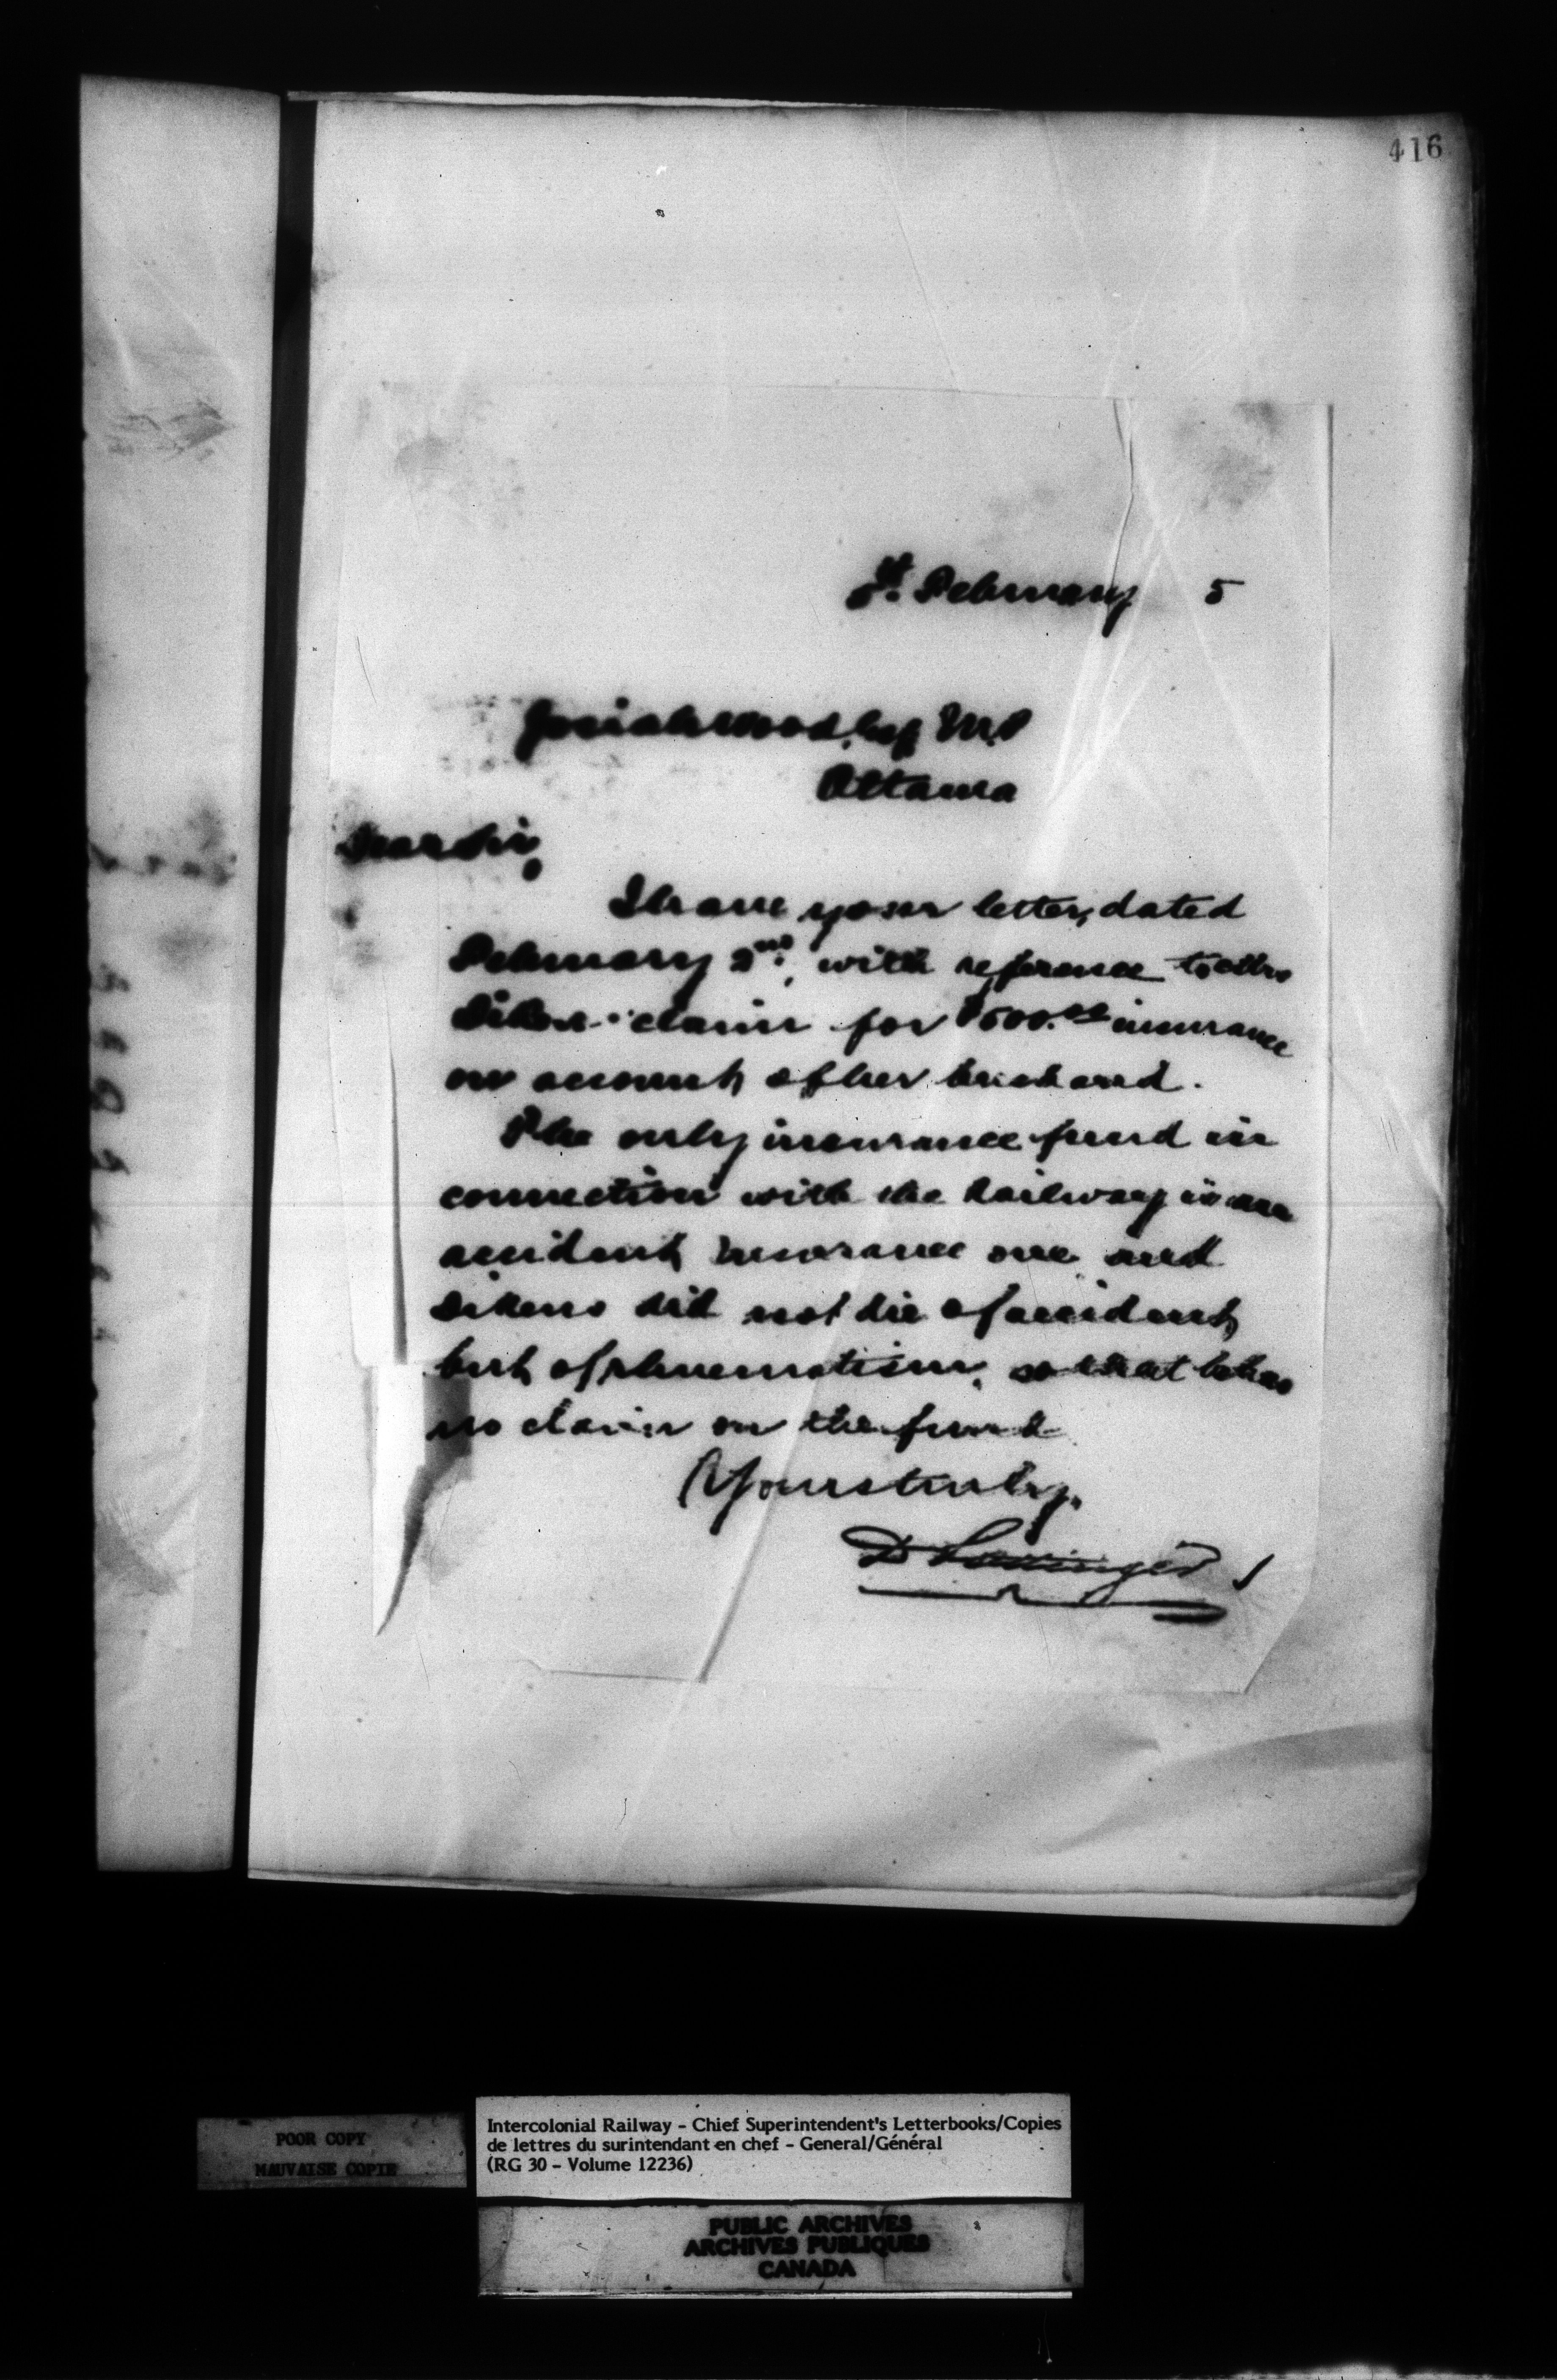 416
February 5
Josiah Wood, Esq M.P
Ottawa
Dear Sir,
I have your letter, dated
February 2nd, with reference to Mrs
claim for $500.00 insurance
on account of her husband.
The only insurance fund in
connection with the Railway is an
accident insurance one and
Sikens did not die of accident,
but of rheumatism, so that he has
no claim on the fund
Yours truly,
D Pottinger
POOR COPY
MAUVAISE COPIE
Intercolonial Railway - Chief Superintendent's Letterbooks/Copies
de lettres du surintendant en chef - General/Général
(RG 30 - Volume 12236)
PUBLIC ARCHIVES
ARCHIVES PUBLIQUES
CANADA